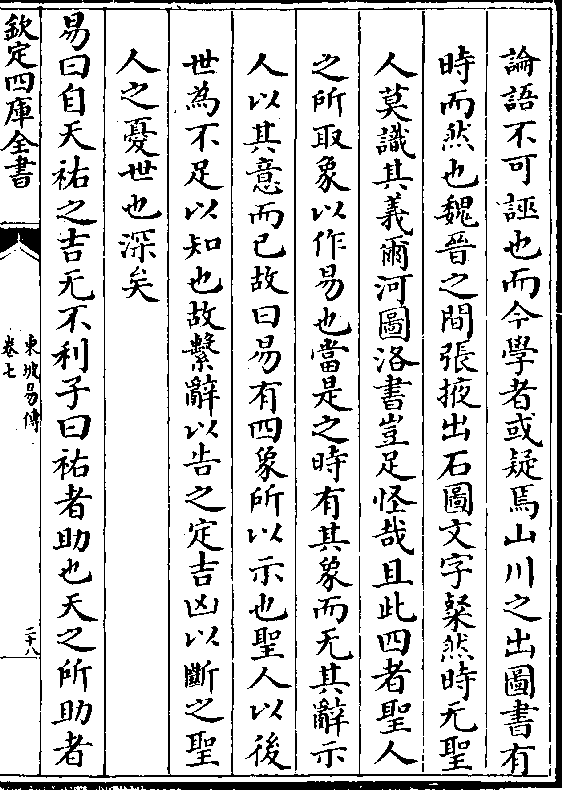 論語不可誣也而今學者或疑焉山川之出圖書有
時而然也魏晉之間張掖出石圖文字粲然時无聖
人莫識其義爾河圖洛書豈足怪哉且此四者聖人
之所取象以作易也當是之時有其象而无其辭示
人以其意而已故曰易有四象所以示也聖人以後
世為不足以知也故繫辭以告之定吉凶以斷之聖
人之憂世也深矣
易曰自天祐之吉无不利子曰祐者助也天之所助者
欽定四庫全書
東坡易傳
卷七
二十八